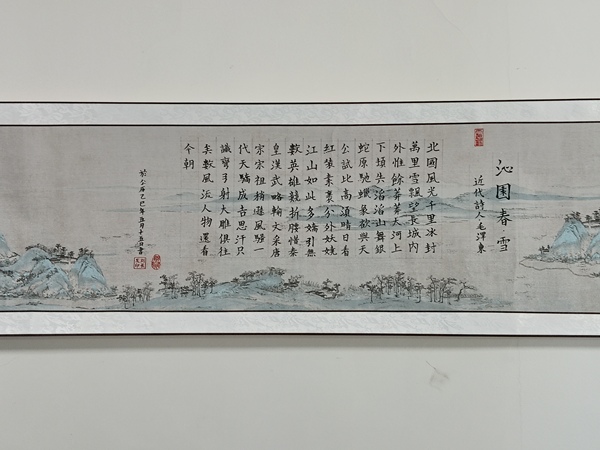 沁園春雪
近代詩人毛澤東
北國風光千里冰封
萬里雪飄望長城内
外惟餘莽莽大河上
下頓失滔滔山舞銀
蛇原馳蠟象欲與天
公試比高須晴日看
紅裝素裹分外妖嬈
江山如此多嬌引無
數英雄競折腰惜秦
皇漢武略輸文采唐
宗宋祖稍遜風騷一
代天驕成吉思汗只
識彎弓射大雕俱往
矣數風流人物還看
今朝
乙巳年